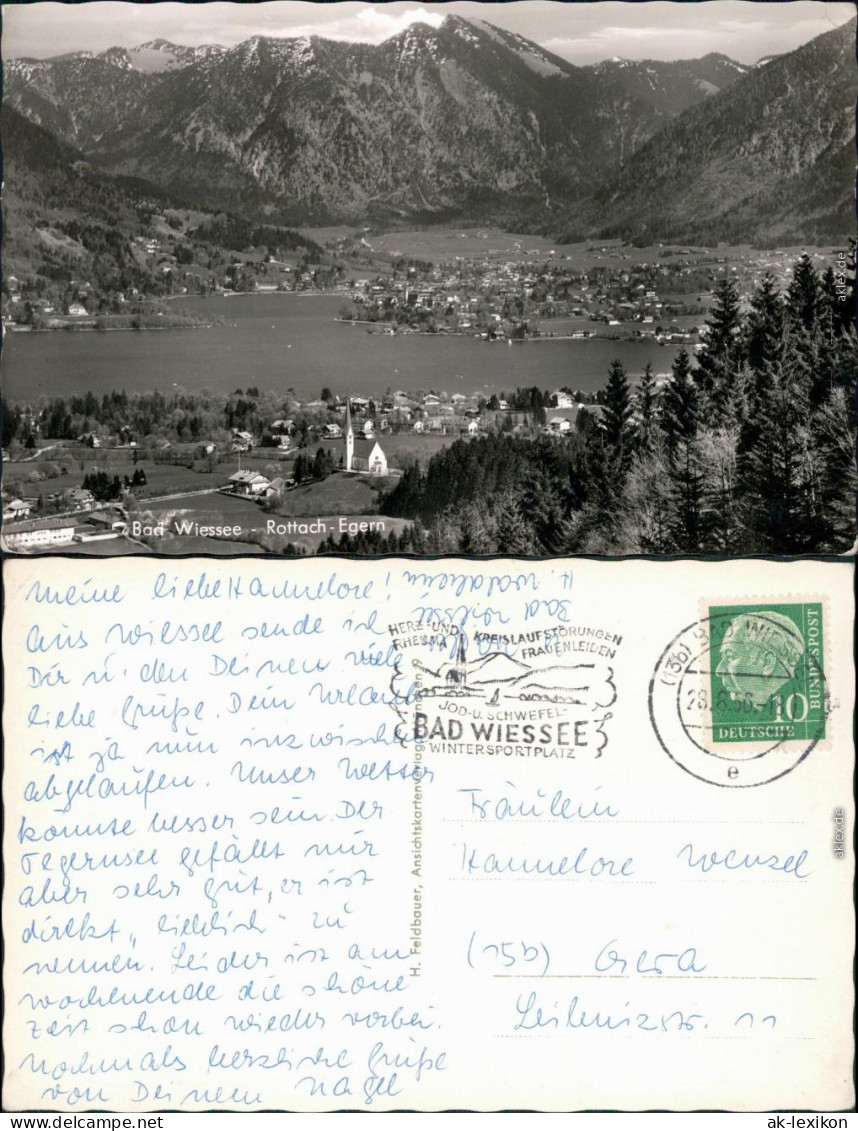 Bad Wiessee - Rottach-Egern
aklex.de
Meine liebe Hannelore!
Aus Wiessee sende ich
Dir u. den Deinen viele
liebe Grüße. Dein Urlaub
ist ja nun inzwischen
abgelaufen. Unser Wetter
könnte besser sein. Der
Tegernsee gefällt mir
aber sehr gut, er ist
direkt „lieblich“ zu
nennen. Leider ist am
Wochenende die schöne
Zeit schon wieder vorbei.
Nochmals herzliche Grüße
von Deinem Nagel
Bad Wiessee
H. Feldbauer, Ansichtskartenverlag
HERZ- UND
RHEUMA
KREISLAUFSTÖRUNGEN
FRAUENLEIDEN
JOD- U. SCHWEFEL-
BAD WIESSEE
WINTERSPORTPLATZ
(13b) BAD WIESSEE
28.8.56
e
10
DEUTSCHE
BUNDESPOST
Fräulein
Hannelore Wenzel
(15b) Gera
Leibnizstr. 11
aklex.de
www.ak-ansichtskarten.de
ak-lexikon